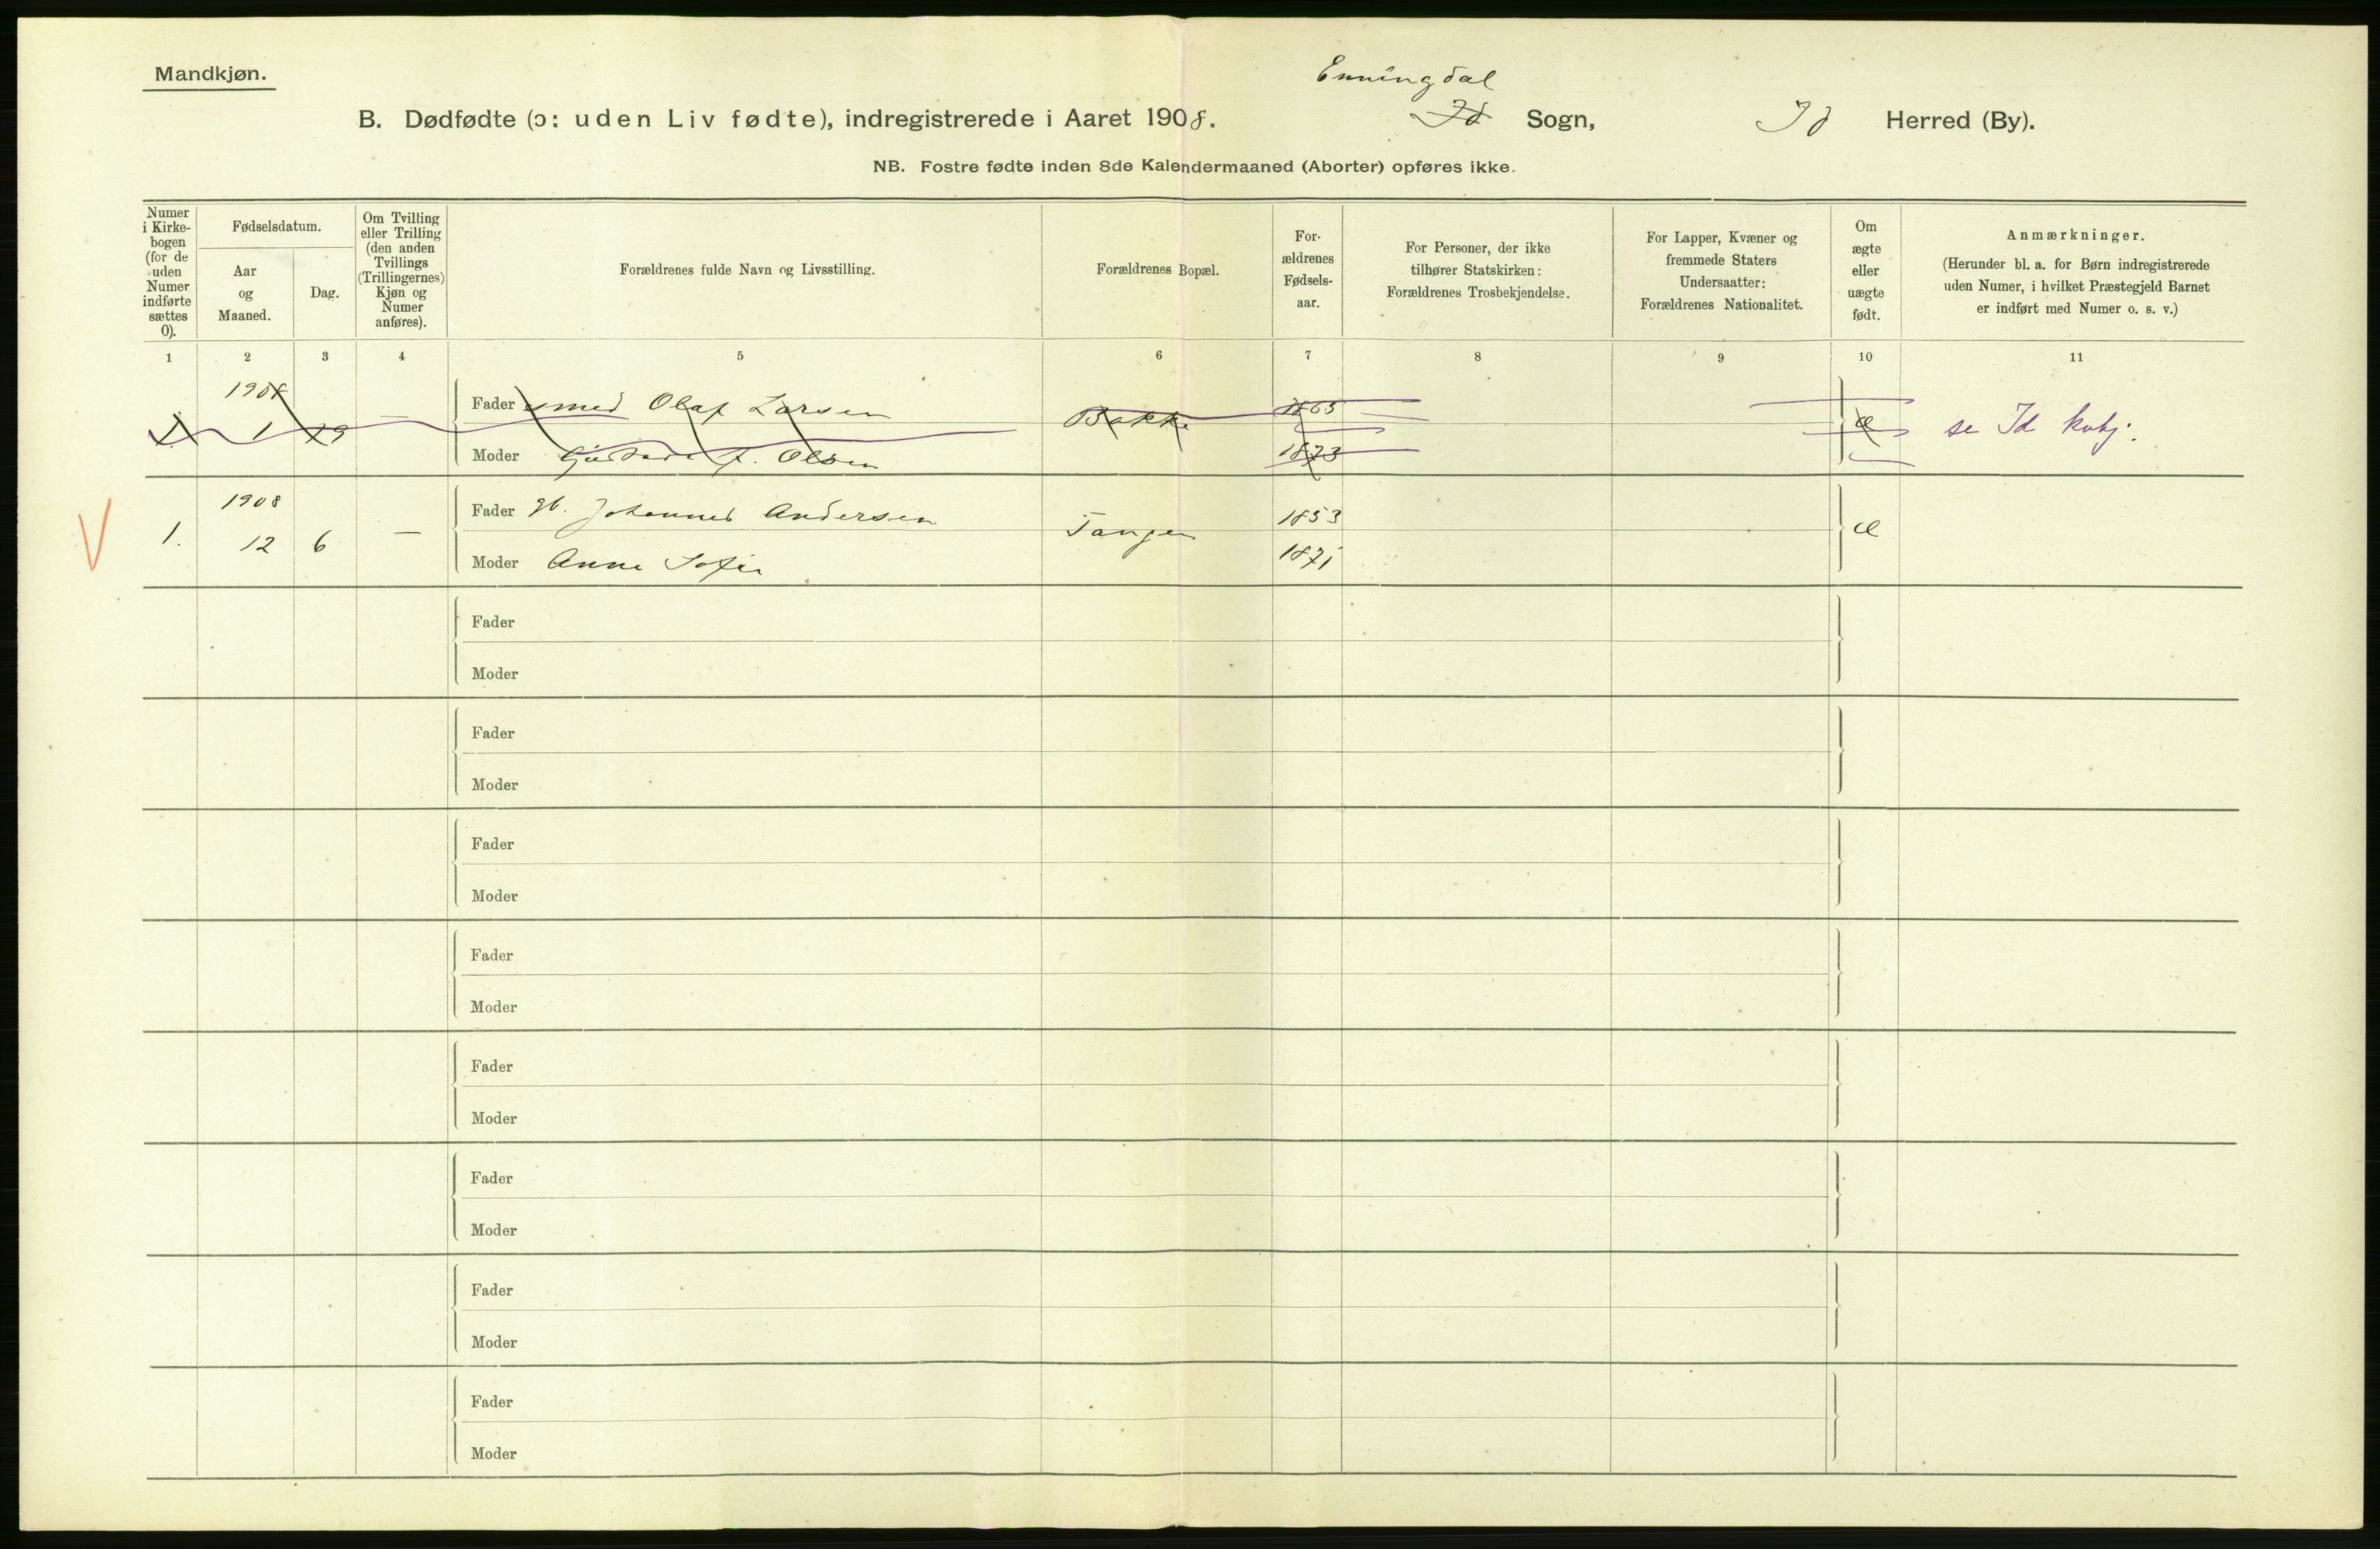 Mandkjøn.
Enningdal
B. Dødfødte (ɔ: uden Liv fødte), indregistrerede i Aaret 1908. Id Sogn, Id Herred (By).
NB. Fostre fødte inden 8de Kalendermaaned (Aborter) opføres ikke.
Numer
i Kirke-
bogen
(for de
uden
Numer
indførte
sættes
0).
Fødselsdatum.
Aar
og
Maaned.
Dag.
Om Tvilling
eller Trilling
(den anden
Tvillings
(Trillingernes)
Kjøn og
Numer
anføres).
Forældrenes fulde Navn og Livsstilling.
Forældrenes Bopæl.
For-
ældrenes
Fødsels-
aar.
For Personer, der ikke
tilhører Statskirken:
Forældrenes Trosbekjendelse.
For Lapper, Kvæner og
fremmede Staters
Undersaatter:
Forældrenes Nationalitet.
Om
ægte
eller
uægte
født.
Anmærkninger.
(Herunder bl. a. for Børn indregistrerede
uden Numer, i hvilket Præstegjeld Barnet
er indført med Numer o. s. v.)
1 2 3 4 5 6 7 8 9 10 11
1908
Fader smed Olaf Larsen 1863
1 1 Bakke æ se Id
Moder Olsen 1873
1908
Fader Johannes Andersen 1853
1. 12 6 — Tangen æ
Moder Anne Sofie 1871
Fader
Moder
Fader
Moder
Fader
Moder
Fader
Moder
Fader
Moder
Fader
Moder
Fader
Moder
Fader
Moder